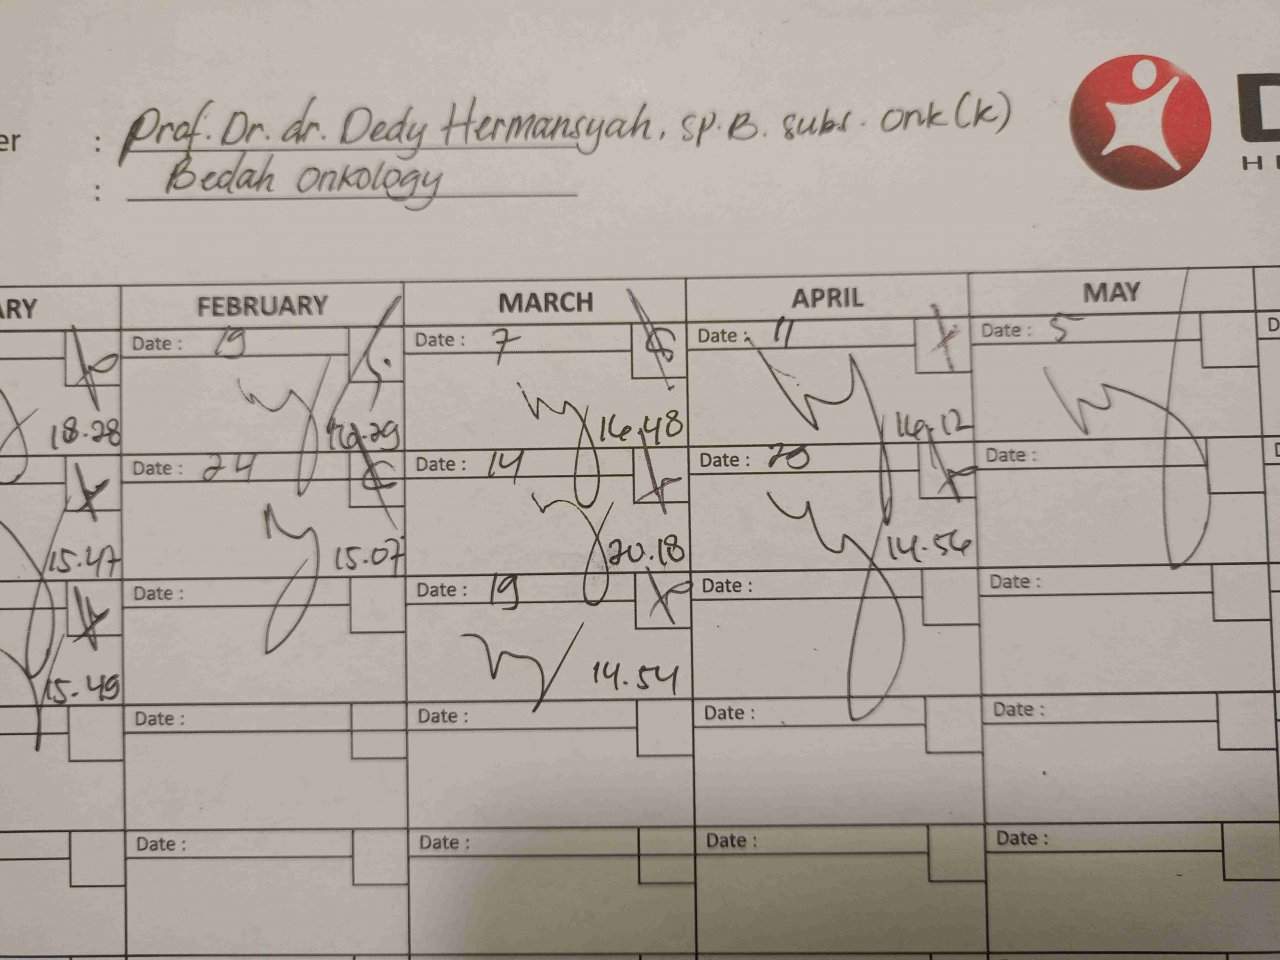 er : Prof. Dr. dr. Dedy Hermansyah, sp.B. subs. onk(K)
: Bedah Onkology
D
H
ARY FEBRUARY MARCH APRIL MAY
Date : 19 Date : 7 Date : 11 Date : 5 D
18.28 16.48 16.12
Date : 24 Date : 14 Date : 20 Date :
15.47 15.07 20.18 14.56
Date : Date : 19 Date : Date :
15.49 14.54
Date : Date : Date : Date :
Date : Date : Date : Date :